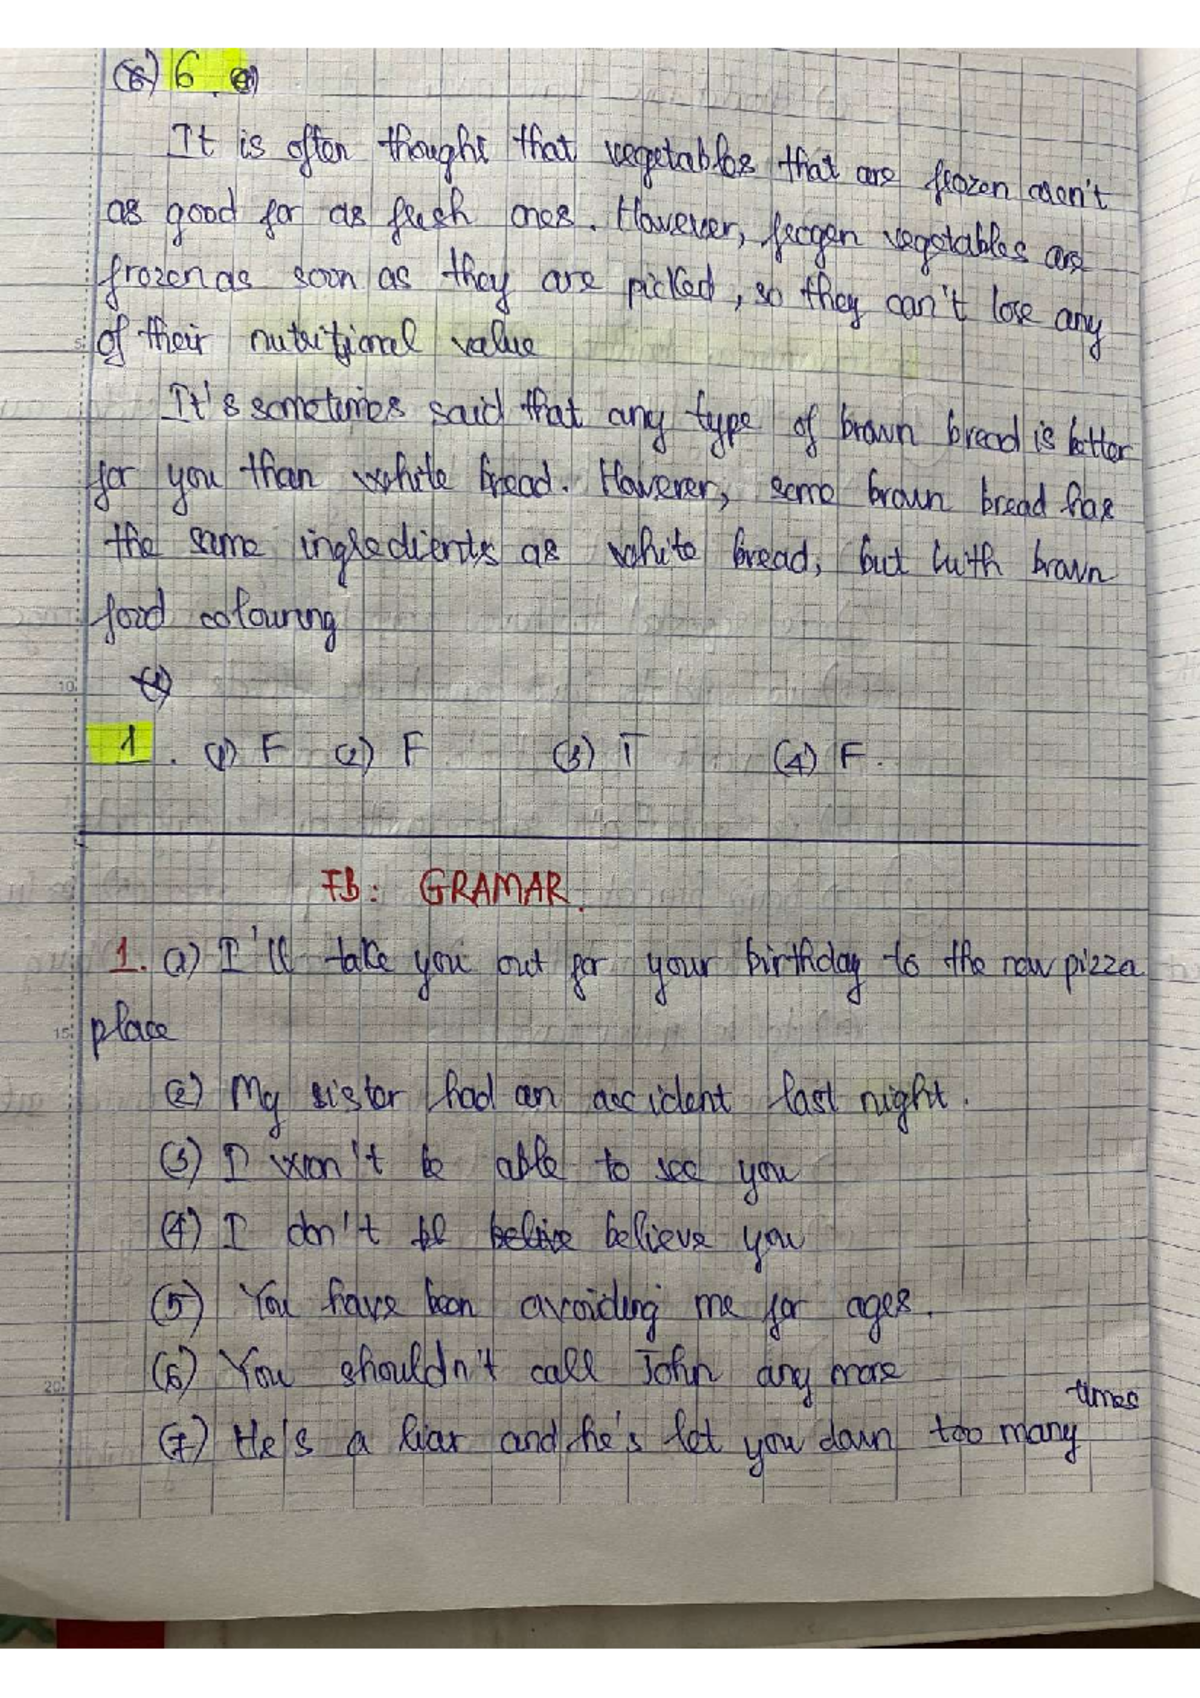 6.
It is often thought that vegetables that are frozen aren't
as good for as fresh ones. However, frozen vegetables are
frozen as soon as they are picked, so they can't lose any
of their nutritional value
It's sometimes said that any type of brown bread is better
for you than white bread. However, some brown bread has
the same ingredients as white bread, but with brown
food colouring
1. (1) F (2) F (3) T (4) F.
7B: GRAMAR.
1. (1) I'll take you out for your birthday to the new pizza
place
(2) My sister had an accident last night.
(3) I won't be able to see you
(4) I don't believe you
(5) You have been avoiding me for ages.
(6) You shouldn't call John any more
(7) He's a liar and he's let you down too many times